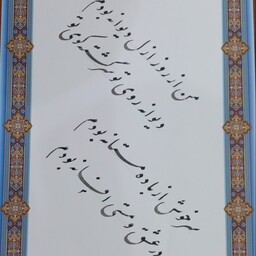 من از روز ازل دیوانه بودم
دیوانه روی تو سرگشته کوی تو
سرخوش از باده مستانه بودم
در عشق و مستی افسانه بودم